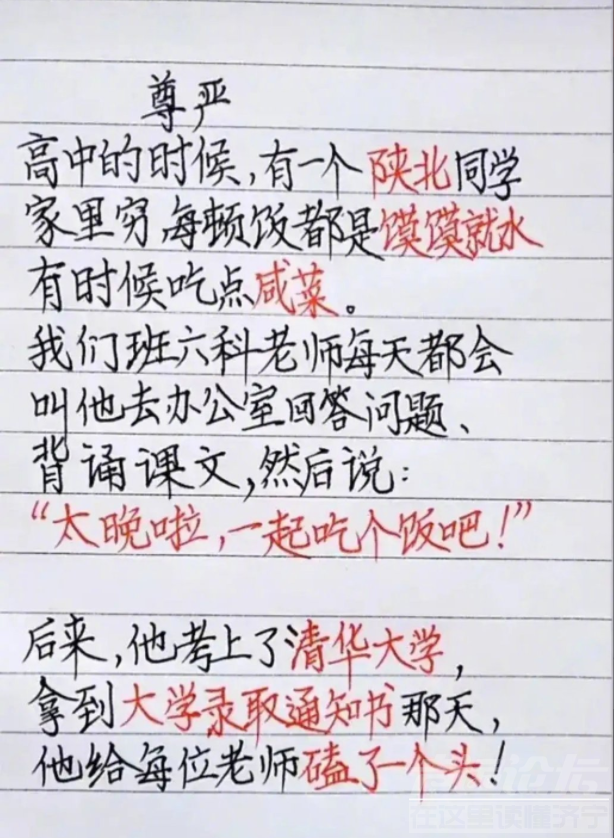 尊严
高中的时候,有一个陕北同学
家里穷每顿饭都是馍馍就水
有时候吃点咸菜。
我们班六科老师每天都会
叫他去办公室回答问题、
背诵课文,然后说:
“太晚啦,一起吃个饭吧!”
后来,他考上了清华大学,
拿到大学录取通知书那天,
他给每位老师磕了一个头!
在这里读懂济宁